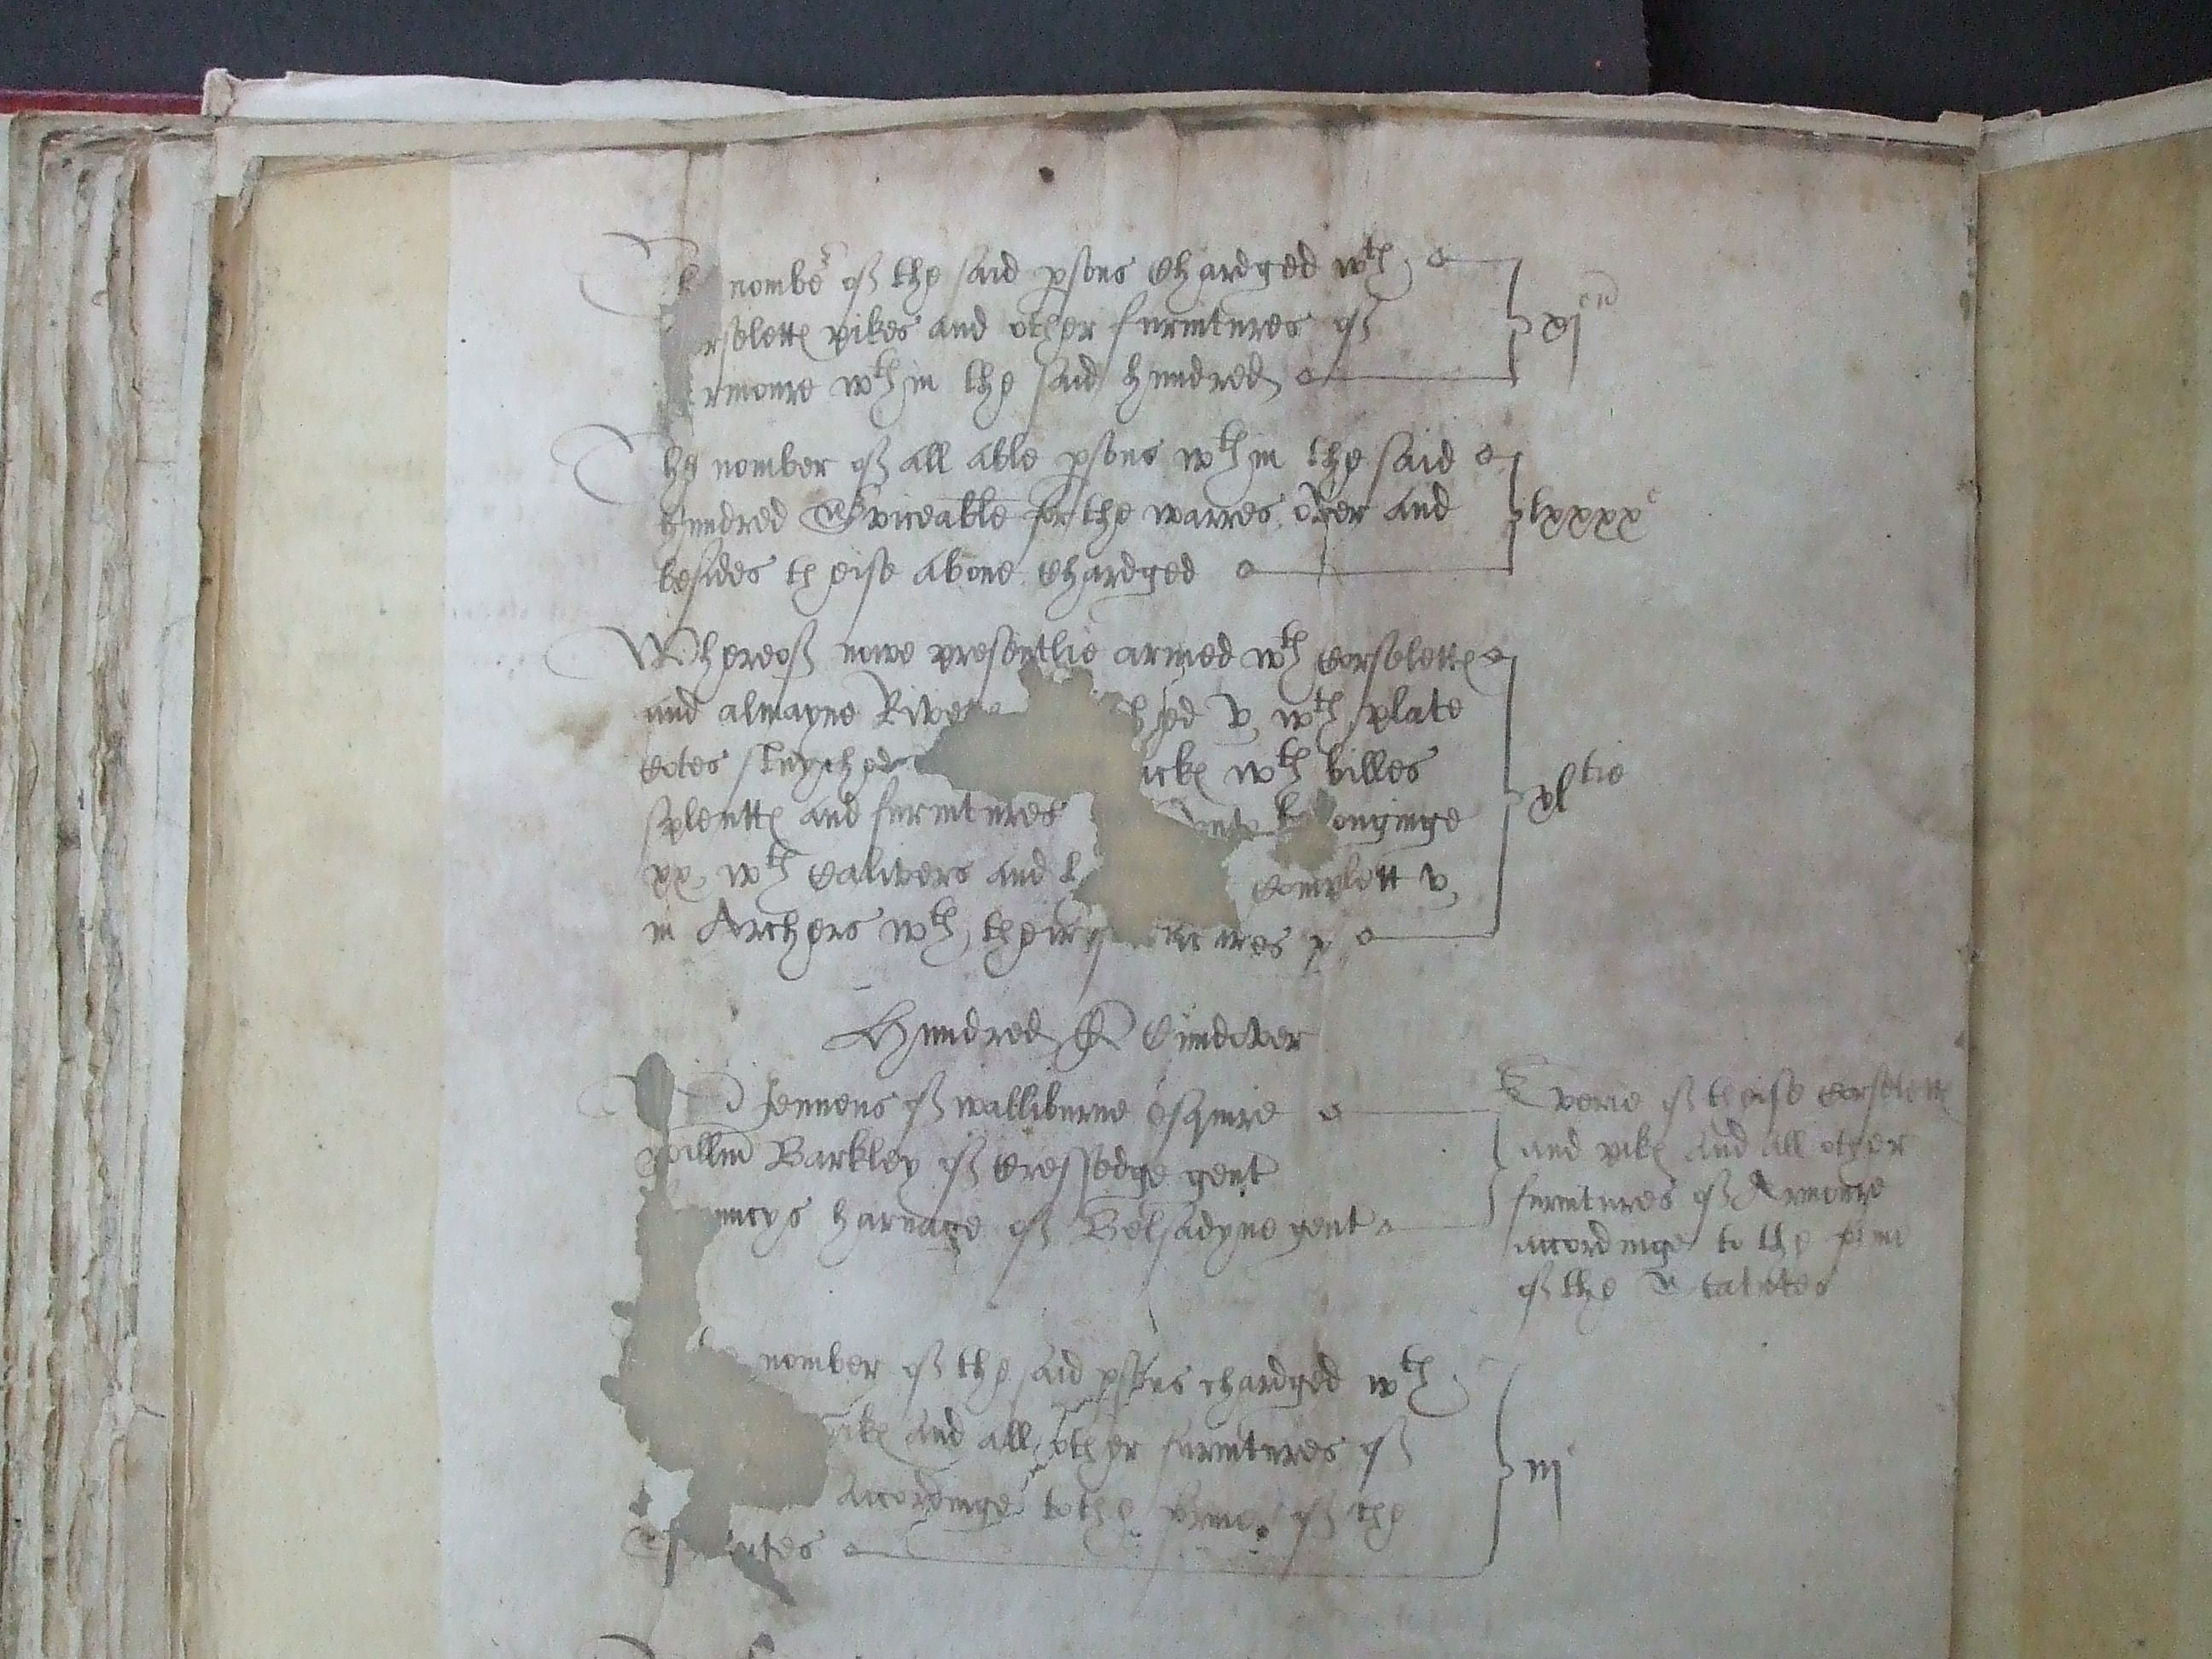 nomber of the said psons Chardged wth
rselett pikes and other furnitures of
rmoure wthin the said hundred
xj
The nomber of all able psons wthin the said
hundred Sviceable for the warres over and
besides theise above Chardged
lxxxx
Whereof nowe presentlie armed wth Corselett
and almayne Rive hed v, wth plate
Cotes wth billes
splentt and furnitures onginge
xx, wth Calivers and Complett v,
in Archers wth their res x
xltie
Hundred de Cundover
Jennens of walliburne esquire
Willm Barkley of Cressedge gent
uncys harnage of Belsadyne gent
Everie of theise Corselett
and pik and all other
furnitures of Armoure
accordinge to the
of the Statutes
nomber of the said psons chardged wth
and all other furnitures of
accordinge to the of the
iij